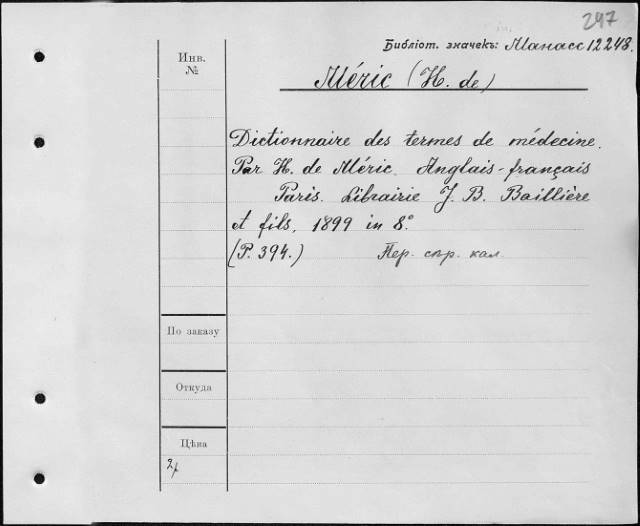 247
Библіот. значекъ: Манасс 12248.
Инв. №
Méric (H. de)
Dictionnaire des termes de médecine.
Par H. de Méric. Anglais-français
Paris. Librairie J. B. Baillière
et fils, 1899 in 8°.
(P. 394.) Пер. спр. кал.
По заказу
Откуда
Цѣна